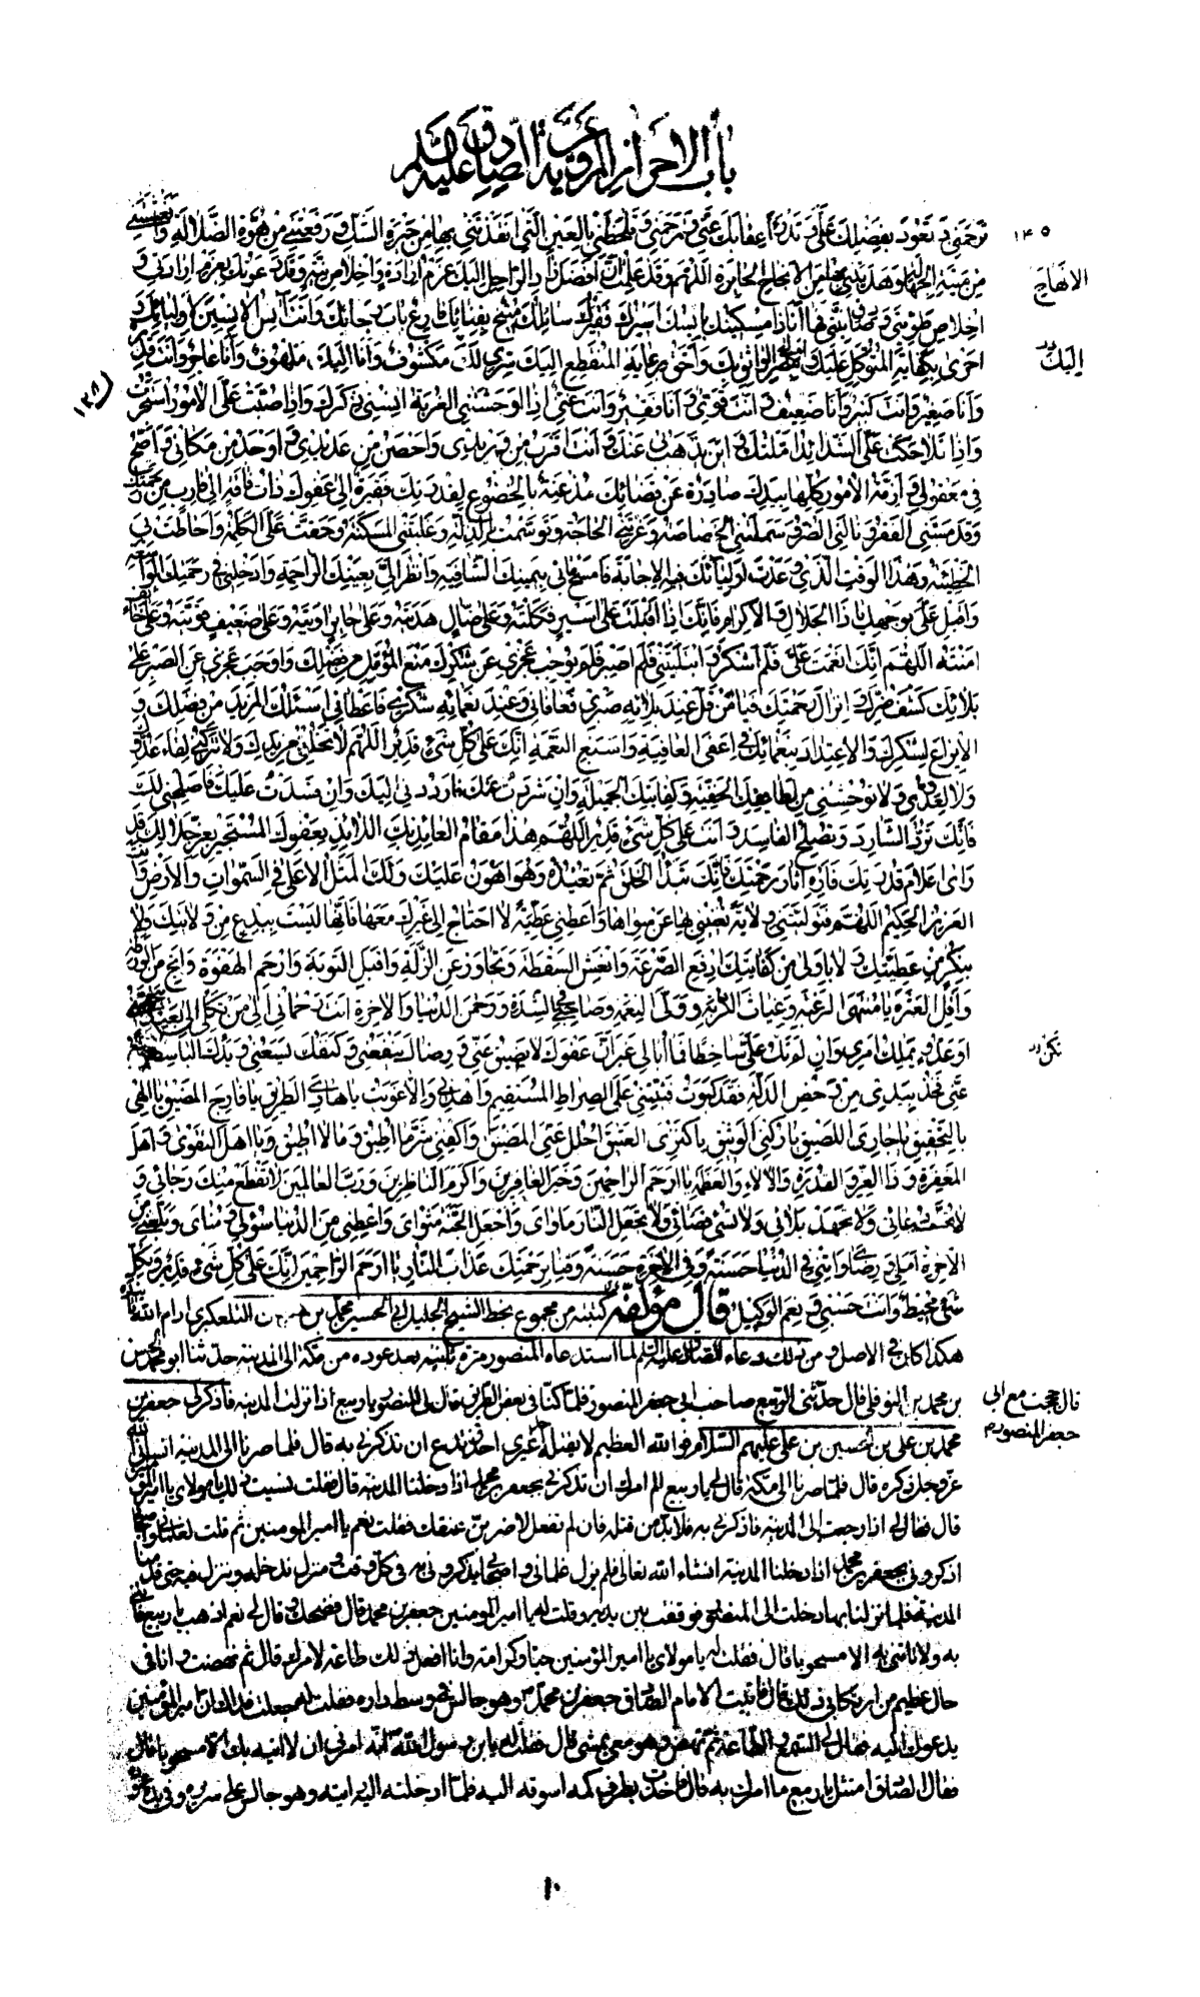 باب الاحراز المروية عن الصادق عليه السلم
ترحمني و تعود بفضلك علي و تدرأ عقابك عني و ترحمني و تلحظني بالعين التي انقذتني بها من حيرة الشك و رفعتني من هوة الضلالة و
١٤٥
من ميتة الجهالة و هديتني بها من الانهاج الحايرة اللهم و قد علمت ان افضل زاد الراحل اليك عزم ارادة و اخلاص نية و قد دعوتك بعزم ارادتي و
الانهاج
اخلاص طويتي و صادق نيتي فها انا ذا مسكينك بائسك اسيرك فقيرك سائلك منيخ بفنائك قارع باب رجائك و انت آنس الآنسين لاوليائك و
احرى بكفاية المتوكل عليك و اولى بنصر الواثق بك و احق برعاية المنقطع اليك سري لك مكشوف و انا اليك ملهوف و انا عاجز و انت قدير
اليك
و انا صغير و انت كبير و انا ضعيف و انت قوي و انا فقير و انت غني اذا اوحشتني الغربة آنسني ذكرك و اذا صبت علي الامور استجرت
١٣٨
و اذا تلاحكت علي الشدائد املتك و اين يذهب بي عنك و انت اقرب من وريدي و احصن من عديدي و اوجد من مكاني و اصح
في معقولي و ازمة الامور كلها بيدك صادرة عن قضائك مذعنة بالخضوع لقدرتك فقيرة الى عفوك ذات فاقة الى قارب من رحمتك
و قد مسني الفقر و نالني الضر و شملتني الخصاصة و عرتني الحاجة و توسمت بالذلة و غلبتني المسكنة و حقت علي الكلمة و احاطت بي
الخطيئة و هذا الوقت الذي وعدت اوليائك فيه الاجابة فامسح ما بي بيمينك الشافية و انظر الي بعينك الراحمة و ادخلني في رحمتك الواسعة
و اقبل علي بوجهك يا ذا الجلال و الاكرام فانك اذا اقبلت على اسير فككته و على ضال هديته و على جاير اويته و على ضعيف قويته و على خائف
امنته اللهم انك انعمت علي فلم اشكر و ابتليتني فلم اصبر فلم يوجب عجزي عن شكرك منع المؤمل من فضلك و اوجب عجزي عن الصبر على
بلائك كشف ضرك و انزال رحمتك فيا من قل عند بلائه صبري فعافاني و عند نعمائه شكري فاعطاني اسئلك المزيد من فضلك و
الايزاع لشكرك و الاعتداد بنعمائك في اعفى العافية و اسبغ النعمة انك على كل شيء قدير اللهم لا تخلني من يدك و لا تتركني لقاء عدوك
و لا لعدوي و لا توحشني من لطائفك الخفية و كفايتك الجميلة و ان شردت عنك فارددني اليك و ان فسدت عليك فاصلحني لك
فانك ترد الشارد و تصلح الفاسد و انت على كل شيء قدير اللهم هذا مقام العائذ بك اللائذ بعفوك المستجير بعز جلالك قد
راى اعلام قدرتك فاره اثار رحمتك فانك تبدأ الخلق ثم تعيده و هو اهون عليك و لك المثل الاعلى في السموات و الارض و انت
العزيز الحكيم اللهم فتولني ولاية تغنيني بها عن سواها و اعطني عطية لا احتاج الى غيرك معها فانها ليست ببدع من ولايتك و لا
بنكر من عطيتك و لا باولى من كفايتك ادفع الصرعة و انعش السقطة و تجاوز عن الزلة و اقبل التوبة و ارحم الهفوة و انج من الورطة
و اقل العثرة يا منتهى الرغبة و غياث الكربة و ولي النعمة و صاحبي في الشدة و رحمن الدنيا و الاخرة انت رحماني الى من تكلني الى بعيد
او عدو يملك امري و ان لم تك علي ساخطا فما ابالي غير ان عفوك لا يضيق عني و رضاك ينفعني و كنفك يسعني و يدك الباسطة
نكن
عني فخذ بيدي من دحض الذلة فقد كبوت فثبتني على الصراط المستقيم و اهدني و الا غويت يا هادي الطريق يا فارج المضيق يا الهي
بالتحقيق يا جاري اللصيق يا ركني الوثيق يا كنزي العتيق احلل عني المضيق و اكفني شر ما اطيق و ما لا اطيق و يا اهل التقوى و اهل
المغفرة و ذا العز و القدرة و الآلاء و العظمة يا ارحم الراحمين و خير الغافرين و اكرم الناظرين و رب العالمين لا تقطع منك رجائي و
لا تخيب دعائي و لا تجهد بلائي و لا تسيء قضائي و لا تجعل النار ماواى و اجعل الجنة مثواى و اعطني من الدنيا سؤلي و مناى و بلغني من
الاخرة املي و رضاى و آتني في الدنيا حسنة و في الاخرة حسنة و قنا برحمتك عذاب النار يا ارحم الراحمين انك على كل شيء قدير و بكل
شيء محيط و انت حسبي و نعم الوكيل قال مؤلفه كتبته من مجموع بخط الشيخ الجليل ابي الحسين محمد بن هرون التلعكبري ادام الله
هكذا كان في الاصل و من ذلك دعاء للصادق عليه السلم لما استدعاه المنصور مرة ثانية بعد عوده من مكة الى المدينة حدثنا ابو محمد الحسن
بن محمد بن النوفلي قال حدثني الربيع صاحب ابي جعفر المنصور فلما كنا في بعض الطريق قال لي المنصور يا ربيع اذا نزلت المدينة فاذكر لي جعفر بن
قال حججت مع ابي
جعفر المنصور م
محمد بن علي بن الحسين بن علي عليهم السلام فوالله العظيم لا يقتله احد غيري احذر تدع ان تذكرني به قال فلما صرنا الى المدينة انساني الله
عز و جل ذكره قال فلما صرنا الى مكة قال لي يا ربيع الم امرك ان تذكرني بجعفر بن محمد اذا دخلنا المدينة قال فقلت نسيت ذلك يا مولاي يا امير المؤمنين
قال فقال لي اذا رجعت الى المدينة فاذكرني به فلا بد من قتله فان لم تفعل لاضربن عنقك فقلت نعم يا امير المؤمنين ثم قلت لغلماني و اصحابي
اذكروني بجعفر بن محمد اذا دخلنا المدينة انشاء الله تعالى فلم يزل غلماني و اصحابي يذكروني به في كل وقت و منزل ندخله و ننزل فيه حتى قدمنا
المدينة فلما نزلنا بها دخلت الى المنصور فوقفت بين يديه و قلت له يا امير المؤمنين جعفر بن محمد قال فضحك و قال لي نعم اذهب يا ربيع فأتني
به و لا تأتني به الا مسحوبا قال فقلت له يا مولاي يا امير المؤمنين حبا و كرامة و انا افعل ذلك طاعة لامرك قال ثم نهضت و انا في
حال عظيم من ارتكابي ذلك قال فاتيت الامام الصادق جعفر بن محمد و هو جالس في وسط داره فقلت له جعلت فداك ان امير المؤمنين
يدعوك اليه فقال لي السمع و الطاعة ثم نهض و هو معي يمشي قال فقلت له يا بن رسول الله انه امرني ان لا اتيه بك الا مسحوبا قال
فقال الصادق امتثل يا ربيع ما امرك به قال فاخذت بطرف كمه اسوقه اليه فلما ادخلته اليه رايته و هو جالس على سريره و في يده
١٠